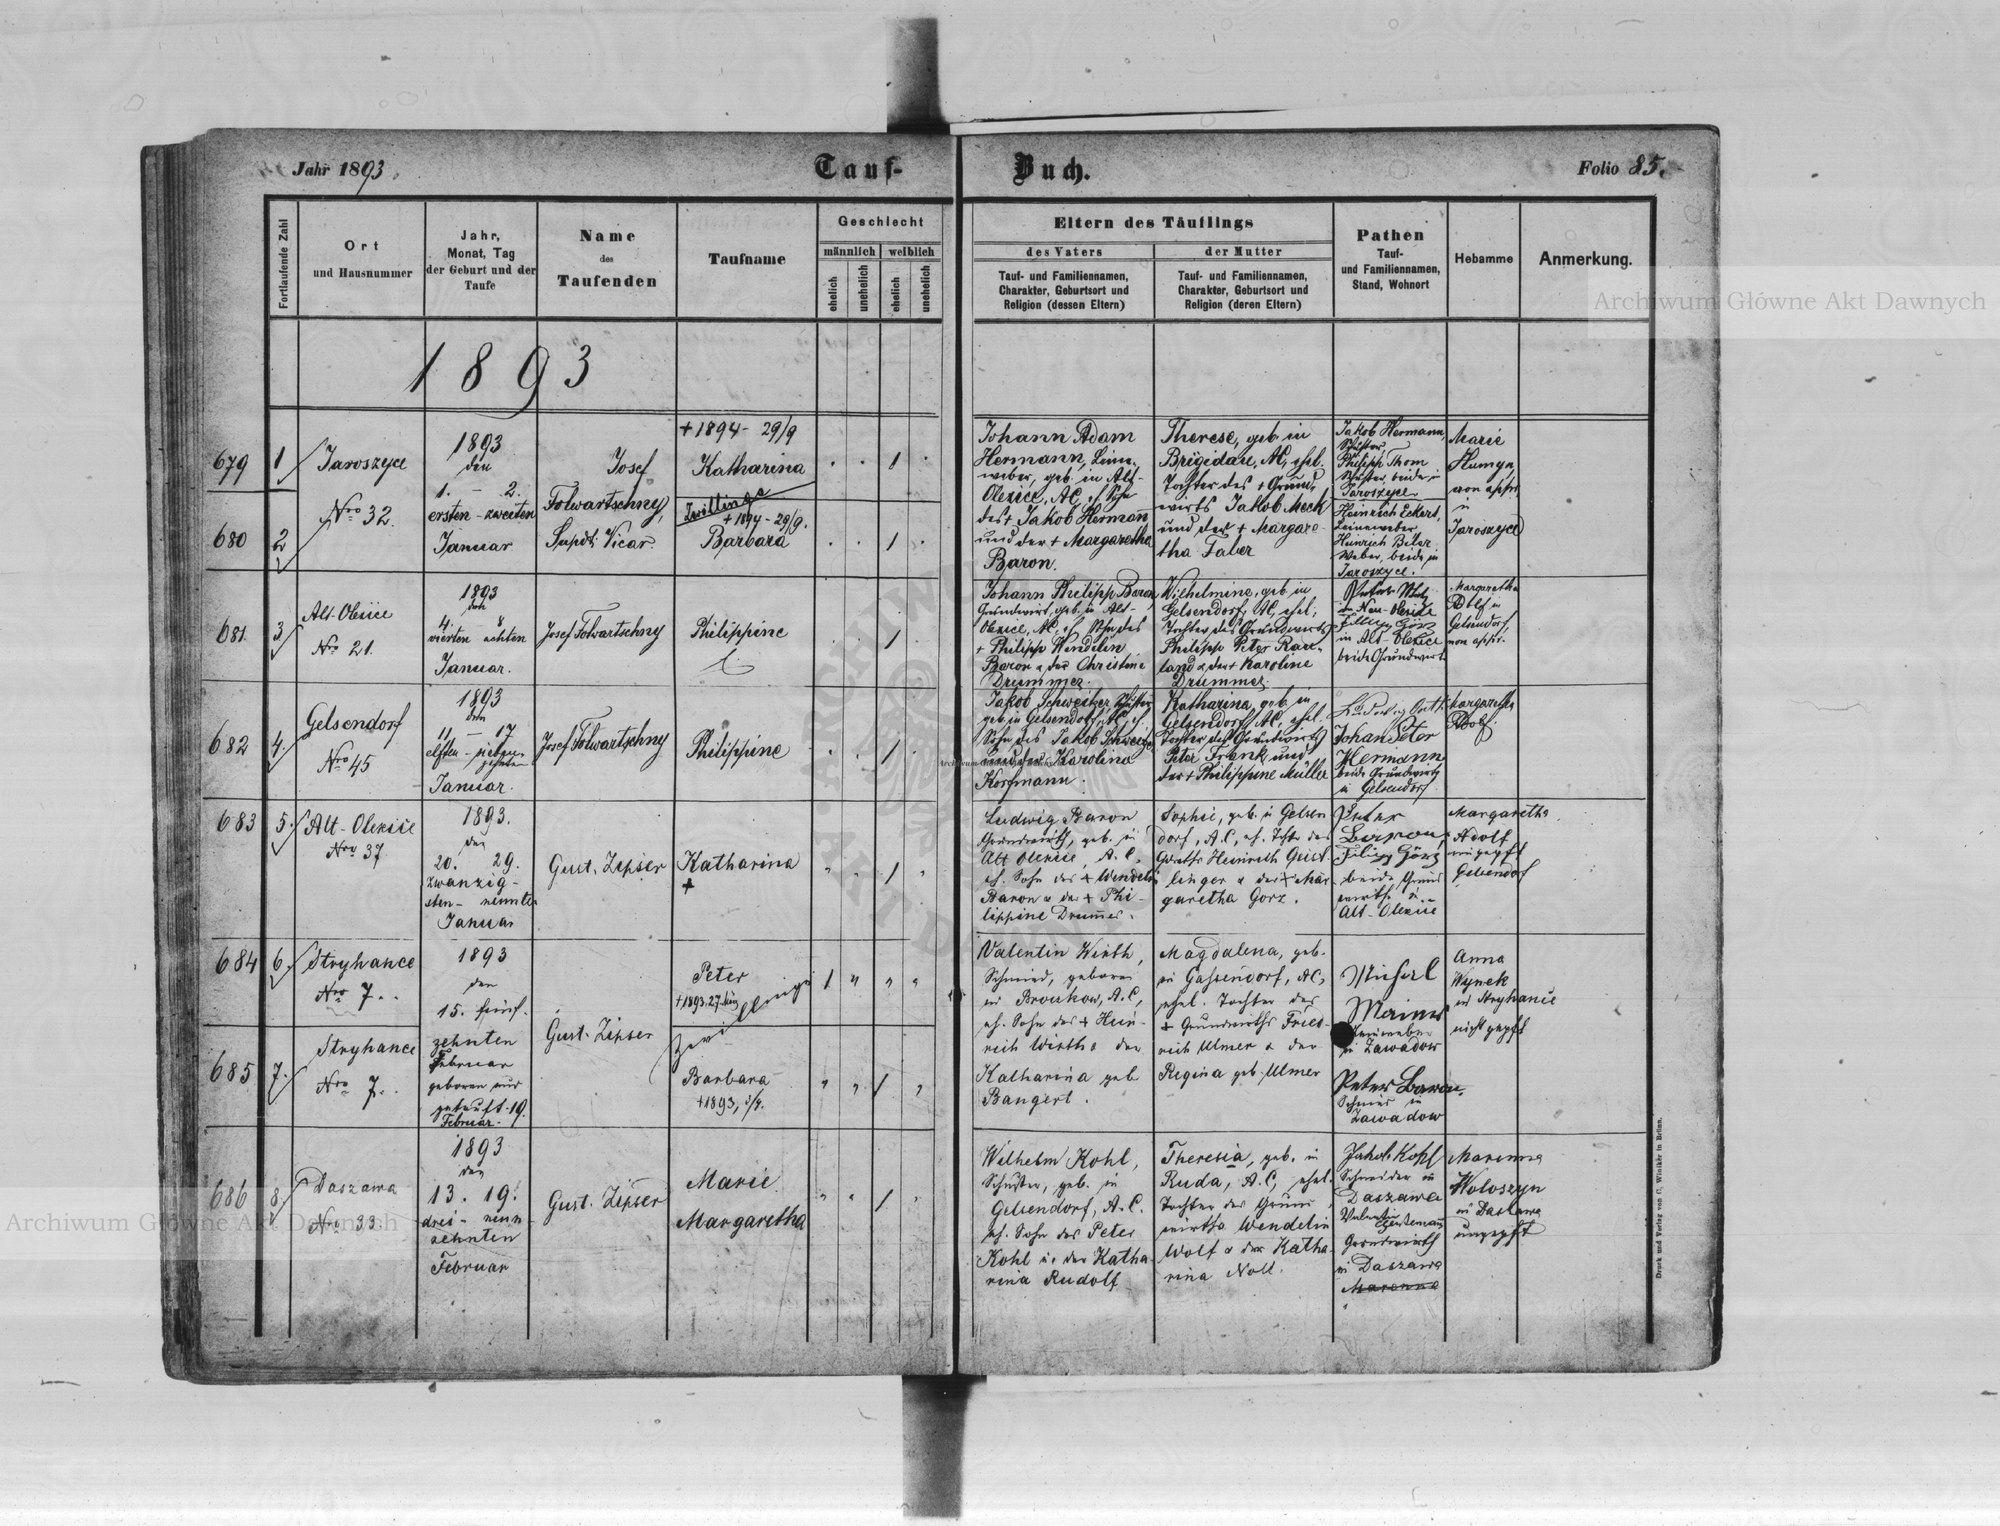 Jahr 1893.
Tauf-
Buch.
Folio 85.
Fortlaufende Zahl
Ort
und Hausnummer
Jahr,
Monat, Tag
der Geburt und der
Taufe
Name
des
Taufenden
Taufname
Geschlecht
männlich
weiblich
ehelich
unehelich
ehelich
unehelich
Eltern des Täuflings
des Vaters
Tauf- und Familiennamen,
Charakter, Geburtsort und
Religion (dessen Eltern)
der Mutter
Tauf- und Familiennamen,
Charakter, Geburtsort und
Religion (deren Eltern)
Pathen
Tauf-
und Familiennamen,
Stand, Wohnort
Hebamme
Anmerkung.
1893
679
1
680
2
Jaroszyce
Nro 32.
1893
den
1. - 2.
ersten - zweiten
Januar
Josef
Folwartschny,
Supdt. Vicar.
+ 1894 - 29/9
Katharina
Zwillinge
+ 1894 - 29/9.
Barbara
1
1
Johann Adam
Hermann, Leine-
weber, geb. in Alt-
Olexice, AC, eh. Sohn
des + Jakob Hermann
und der + Margaretha
Baron.
Therese, geb. in
Brigidau, AC, ehel.
Tochter des + Grund-
wirts Jakob Meck
und der + Margare-
tha Faber
Jakob Hermann,
Schuster,
Philipp Thom
Schuster, beide in
Jaroszyce
Heinrich Eckert,
Leineweber
Heinrich Biler
Weber, beide in
Jaroszyce.
Marie
Humyn,
non appr.
in
Jaroszyce
681
3
Alt-Olexice
Nro 21.
1893
den
4. - 8.
vierten achten
Januar.
Josef Folwartschny
Philippine
1
Johann Philipp Baron
Grundwirt, geb. in Alt-
Olexice, AC, eh. Sohn des
+ Philipp Wendelin
Baron u. der Christine
Drummer.
Wilhelmine, geb. in
Gelsendorf, AC, ehel.
Tochter des Grundwirts
Philipp Peter Rare-
land u. der + Karoline
Drummer.
in Neu-Olexice
Filipp Görz
in Alt-Olexice
beide Grundwirte
Margaretha
Adolf in
Gelsendorf
non appr.
682
4.
Gelsendorf
Nro 45
1893
den
11 - 17
elften - sieben-
zehnten
Januar.
Josef Folwartschny
Philippine
1
Jakob Schweitzer, Schuster
geb. in Gelsendorf, AC, eh.
Sohn des Jakob Schweitzer
und der Karolina
Korfmann.
Katharina, geb. in
Gelsendorf, AC, ehel.
Tochter des Grundwirts
Peter Frank und
der + Philippine Müller
Johan Peter
Hermann
beide Grundwirte
in Gelsendorf
Margaretha
Adolf
683
5.
Alt-Olexice
Nro 37
1893.
den
20. 29.
zwanzig-
sten - neunten
Januar
Gust. Zipser
Katharina
+
1
Ludwig Baron
Grundwirth, geb. in
Alt Olexice, A. C,
eh. Sohn des + Wendelin
Baron u der + Phi-
lippine Drummer.
Sophie, geb. in Gelsen-
dorf, A. C, eh. Tochter des
Grwths Heinrich Geist-
linger u der + Mar-
garetha Görz.
Peter
Baron,
Filipp Görz
beide Grund-
wirthe in
Alt-Olexice
Margaretha
Adolf
ungepft
Gelsendorf
684
6.
Stryhance
Nro 7.
685
7.
Stryhance
Nro 7.
1893
den
15. fünf-
zehnten
Februar
geboren und
getauft 19.
Februar.
Gust. Zipser
Peter
+ 1893. 27. März
Zwillinge
Barbara
+ 1893, 3/4.
1
1
Valentin Wirth,
Schmied, geboren
in Brouków, A. C,
eh. Sohn des + Hein-
reich Wirth u. der
Katharina geb.
Bangert.
Magdalena, geb.
in Gassendorf, AC,
ehel. Tochter des
+ Grundwirths Fried-
reich Ulmer u der
Regina geb. Ulmer
Michael
in Zawadow
Peter Baron,
Schmied in
Zawadow
Anna
Wynek
in Stryhance
nicht gepft
686
8.
Daszawa
Nro 33
1893
den
13. 19.
drei - neun
zehnten
Februar
Gust. Zipser
Marie
Margaretha
1
Wilhelm Kohl,
Schuster, geb. in
Gelsendorf, A. C.
eh. Sohn des Peter
Kohl u. der Katha-
rina Rudolf
Theresia, geb. in
Ruda, A. C, ehel.
Tochter des Grund-
wirths Wendelin
Wolf u der Katha-
rina Noll.
Jakob Kohl
Schneider in
Daszawa
Valentin
Grundwirth
in Daszawa
Maranna
Marinna
Woloszyn
in Daszawa
ungepft
Druck und Verlag von C. Winiker in Brünn.
Archiwum Główne Akt Dawnych
Archiwum Główne Akt Dawnych